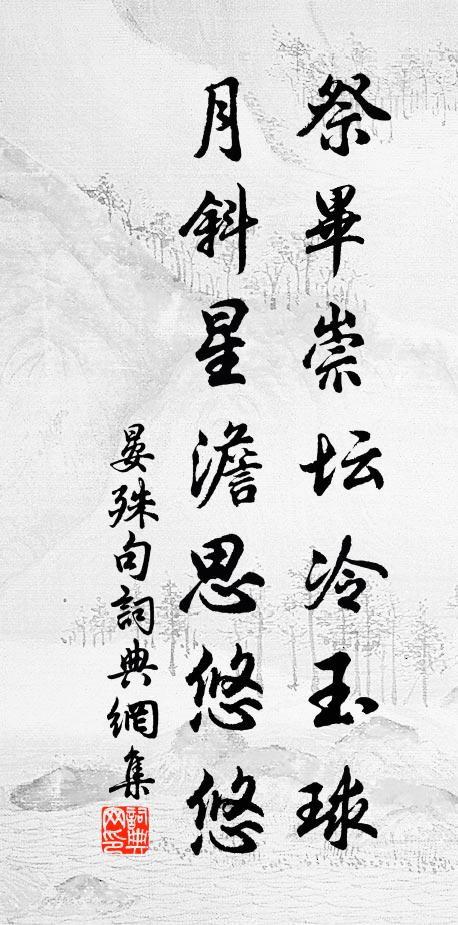 祭畢崇坛冷玉球
月斜星澹思悠悠
晏殊句詞典網集
詞典网印